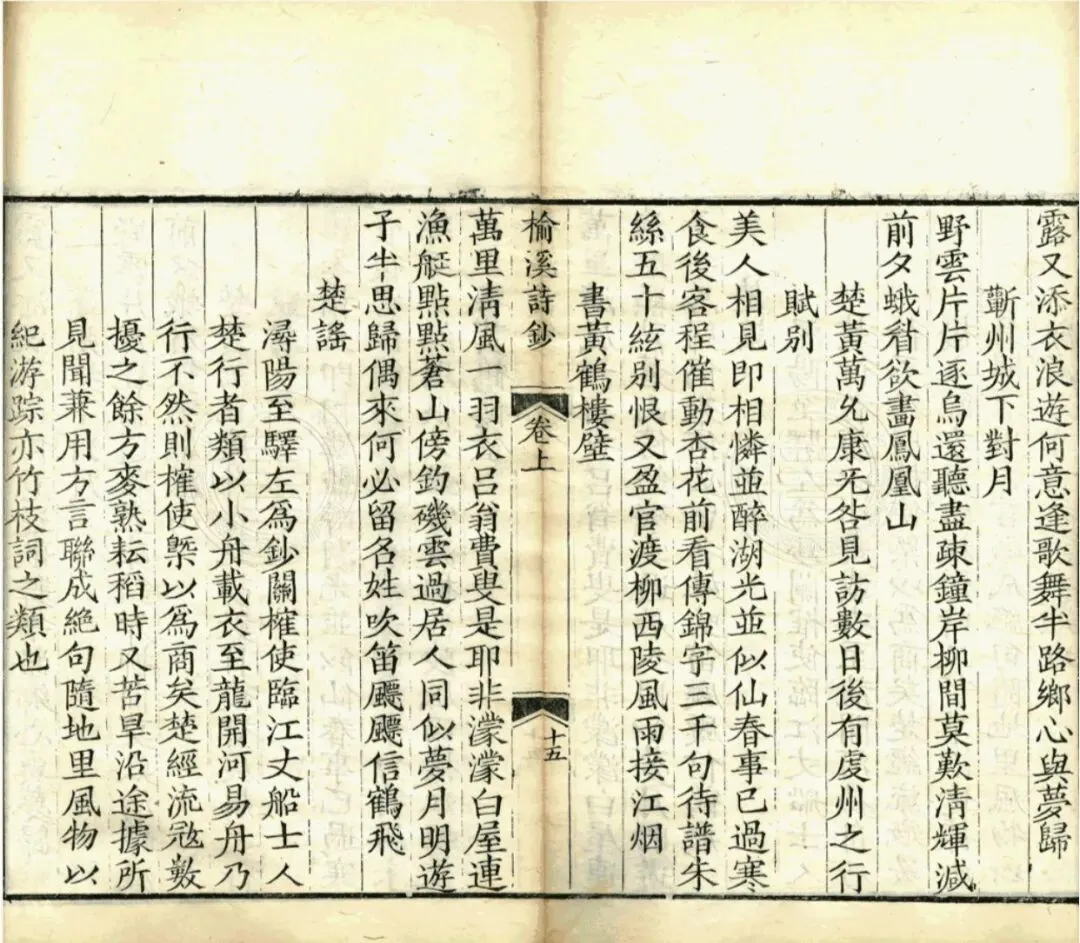 露又添衣浪遊何意逢歌舞半路鄉心與夢歸
蘄州城下對月
野雲片片逐烏還聽盡疎鐘岸柳間莫歎淸輝減
前夕蛾眉欲畫鳳凰山
楚黃萬允康旡咎見訪數日後有虔州之行
賦別
美人相見即相憐並醉湖光並似仙春事已過寒
食後客程催動杏花前看傳錦字三千句待譜朱
絲五十絃別恨又盈官渡柳西陵風雨接江烟
書黃鶴樓壁
榆溪詩鈔
卷上
十五
萬里淸風一羽衣呂翁費叟是耶非濛濛白屋連
漁艇點點蒼山傍釣磯雲過居人同似夢月明遊
子半思歸偶來何必留名姓吹笛飃飃信鶴飛
楚謠
潯陽至驛左爲鈔關榷使臨江丈船士人
楚行者類以小舟載衣至龍開河易舟乃
行不然則榷使槩以爲商矣楚經流寇數
擾之餘方麥熟耘稻時又苦旱沿途據所
見聞兼用方言聯成絶句隨地里風物以
紀游踪亦竹枝詞之類也